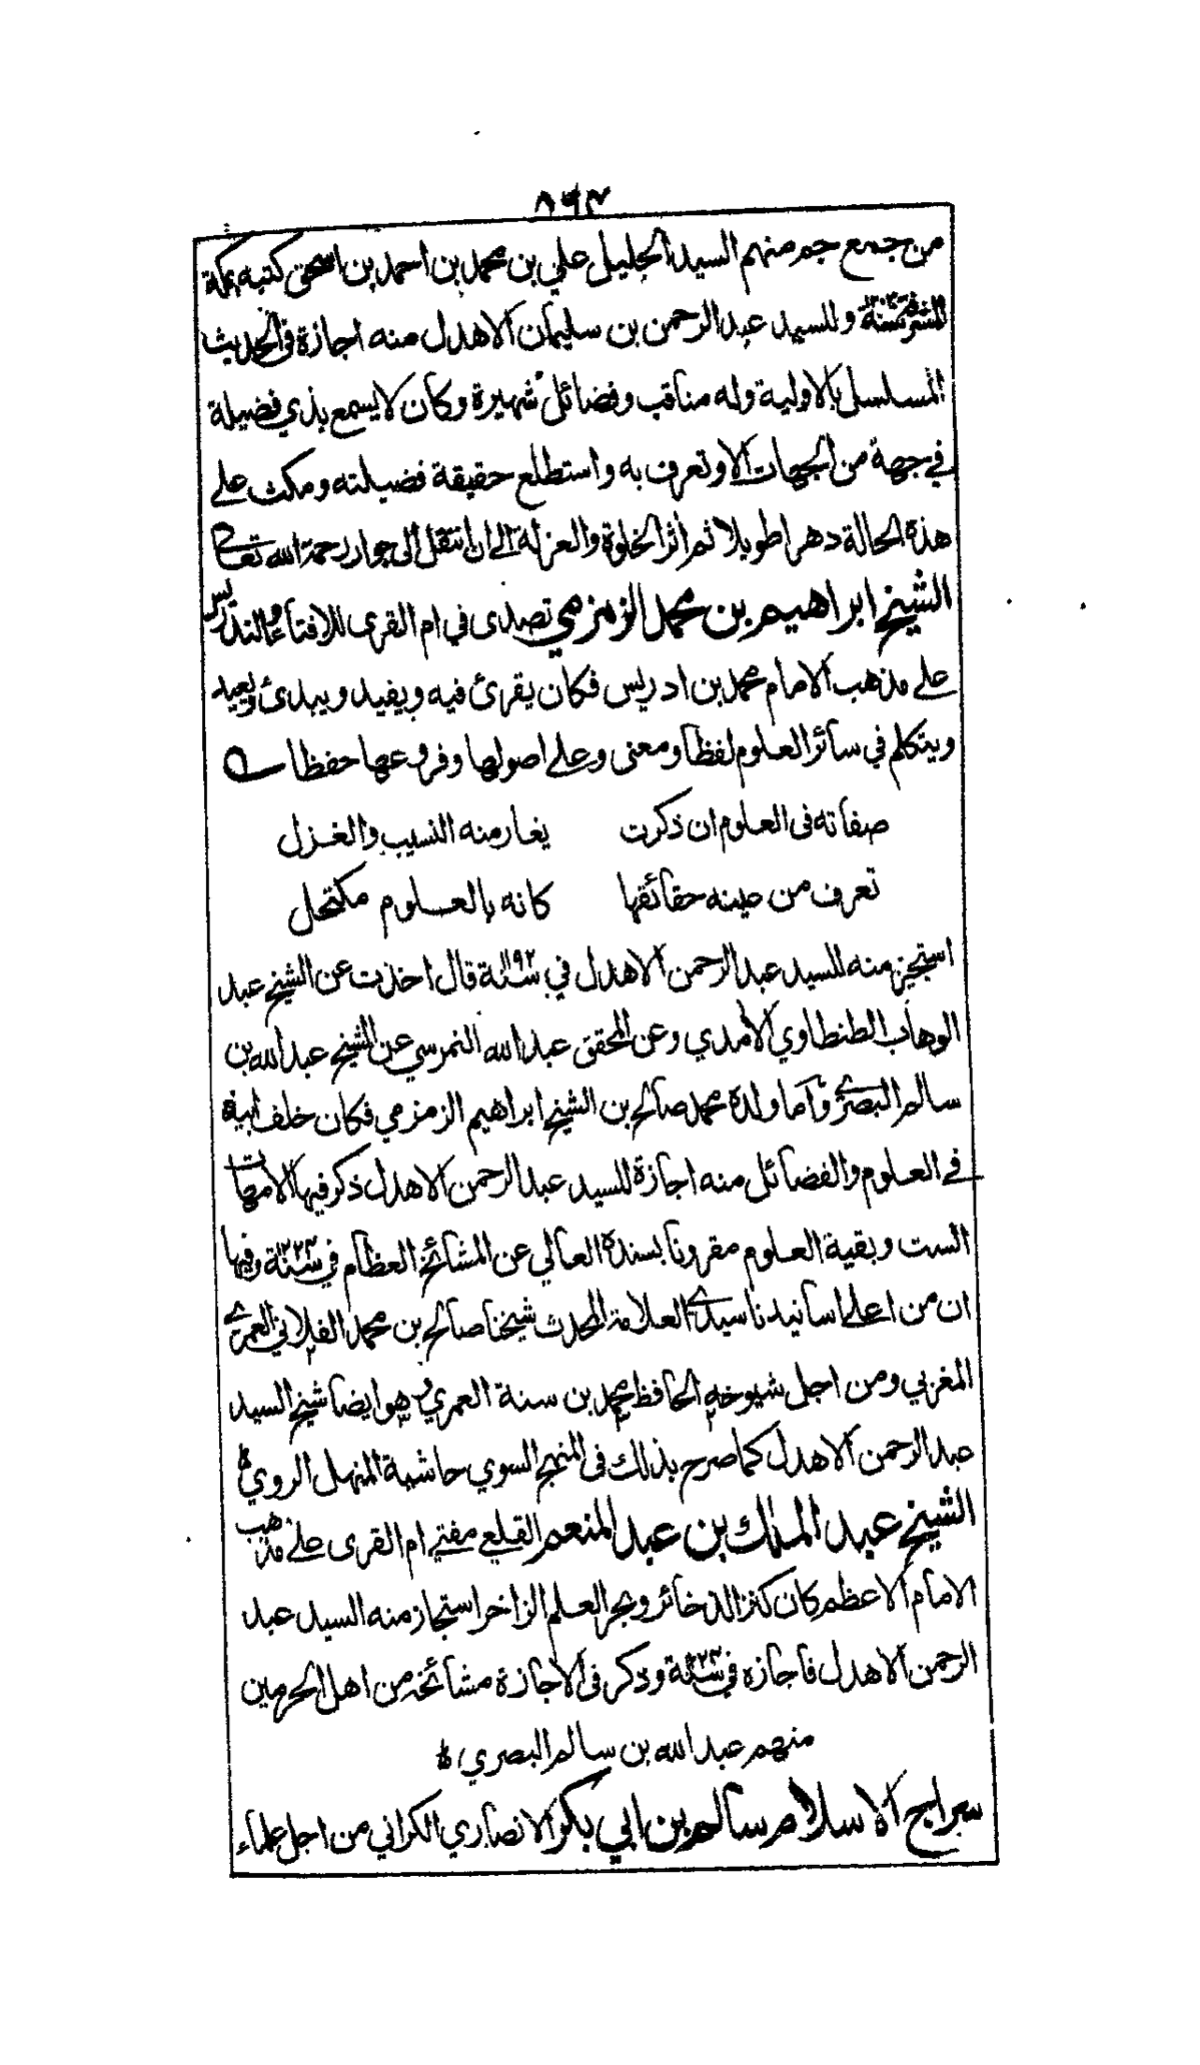 ٨٦٣
من جمع جم منهم السيد الجليل علي بن محمد بن احمد بن اسحق كتبه بمكة
المشرفة سنة وللسيد عبد الرحمن بن سليمان الاهدل منه اجازة في الحديث
المسلسل بالاولية وله مناقب وفضائل شهيرة وكان لا يسمع بذي فضيلة
في جهة من الجهات الا وتعرف به واستطلع حقيقة فضيلته ومكث على
هذه الحالة دهرا طويلا ثم أثر الخلوة والعزلة الى ان انتقل الى جوار رحمة الله تعالى
الشيخ ابراهيم بن محمد الزمزمي تصدى في ام القرى للافتاء والتدريس
على مذهب الامام محمد بن ادريس فكان يقرئ فيه ويفيد ويبدئ ويعيد
ويتكلم في سائر العلوم لفظا ومعنى وعلى اصولها وفروعها حفظا
صفاته في العلوم ان ذكرت يغار منه النسيب والغزل
تعرف من عينه حقائقها كانه بالعلوم مكتحل
استجيز منه للسيد عبد الرحمن الاهدل في سنة ١١٩٢ قال اخذت عن الشيخ عبد
الوهاب الطنطاوي الأمدي وعن المحقق عبد الله النمرسي عن الشيخ عبد الله بن
سالم البصري وأما ولده محمد صالح بن الشيخ ابراهيم الزمزمي فكان خلف ابيه
في العلوم والفضائل منه اجازة للسيد عبد الرحمن الاهدل ذكر فيها الامهات
الست وبقية العلوم مقرونا بسنده العالي عن المشائخ العظام في سنة ١٢٢٣ وفيها
ان من اعلى اسانيدنا سيدي العلامة المحدث شيخنا صالح بن محمد الفلاني العمري
المغربي ومن اجل شيوخه الحافظ محمد بن سنة العمري وهو ايضا شيخ السيد
عبد الرحمن الاهدل كما صرح بذلك في المنهج السوي حاشية المنهل الروي
الشيخ عبد الملك بن عبد المنعم القلعي مفتي ام القرى على مذهب
الامام الاعظم كان كنز الذخائر وبحر العلم الزاخر استجاز منه السيد عبد
الرحمن الاهدل فاجازه في سنة ١٢٢٣ وذكر في الاجازة مشائخه من اهل الحرمين
منهم عبد الله بن سالم البصري
سراج الاسلام سالم بن ابي بكر الانصاري الكراني من اجل علماء